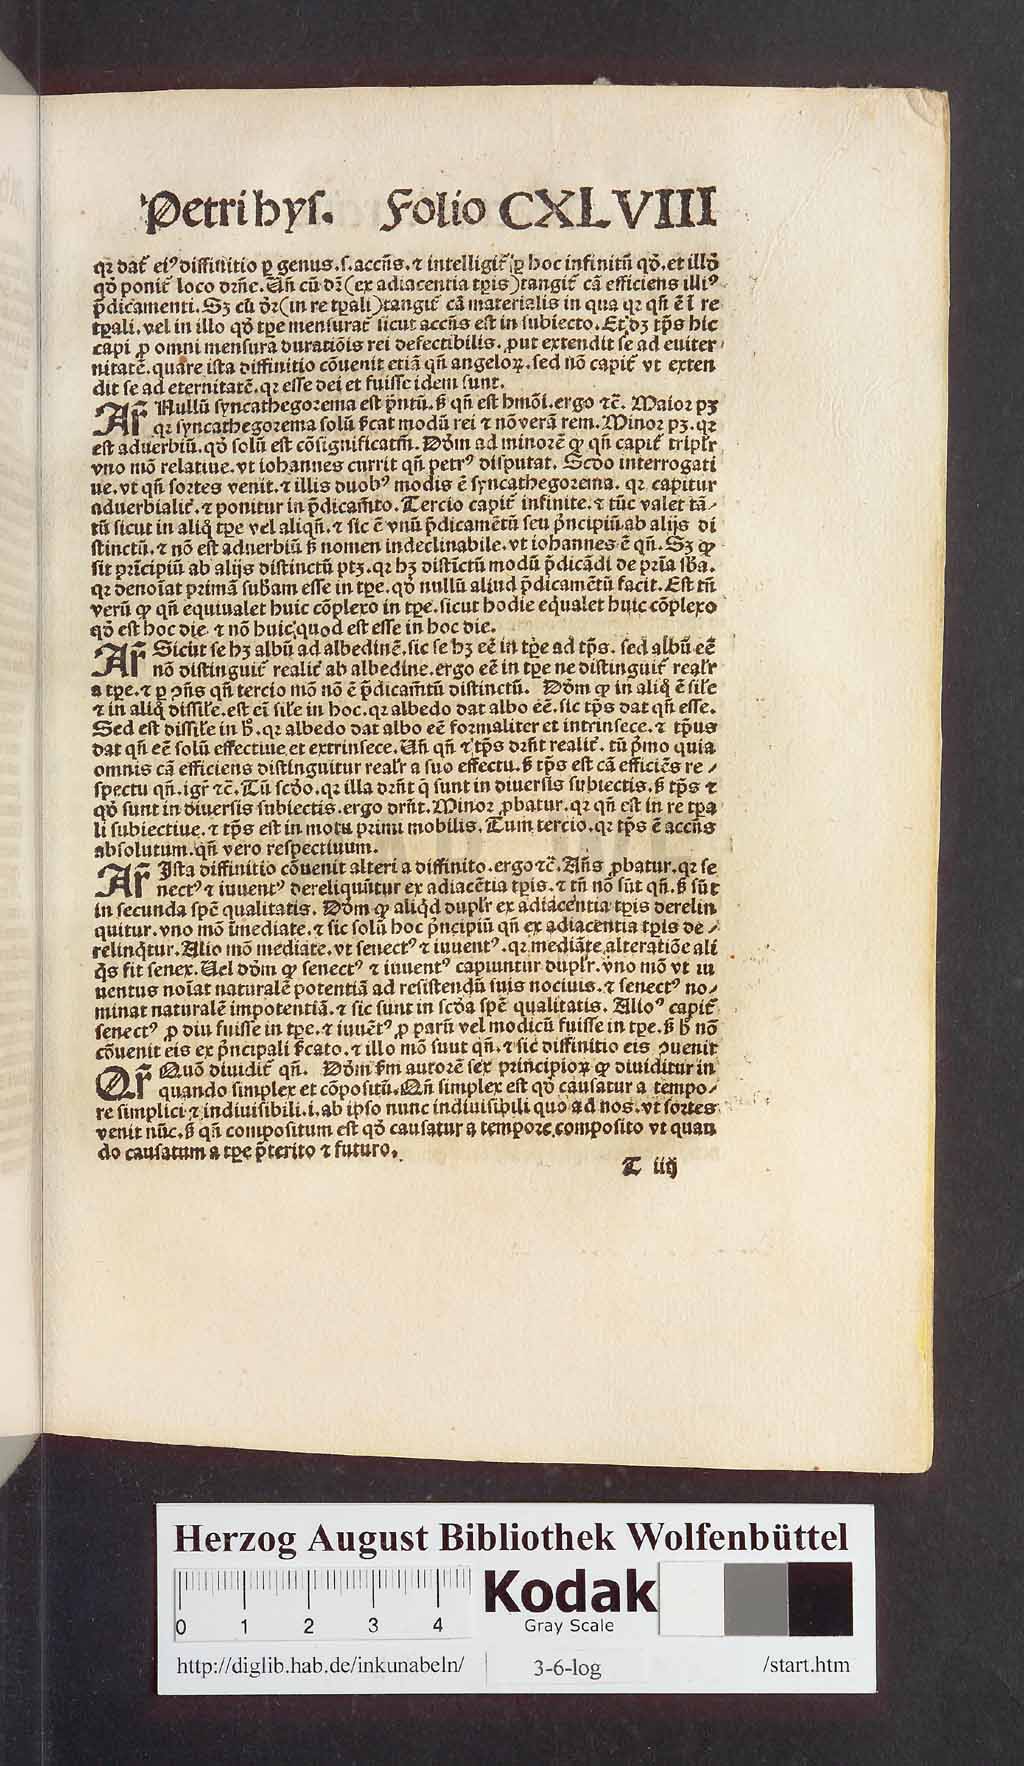 Petri hys. Folio CXLVIII
qꝛ dat᷑ eiꝰ diffinitio ꝑ genus.ſ.accn̄s.⁊ intelligit᷑ ꝑ hoc infinitū qd̓.et illd̓
qd̓ ponit᷑ loco drn̄e.Un̄ cū dꝛ̄(ex adiacentia tꝑis)tangit᷑ cā efficiens illiꝰ
p̄dicamenti.Sꝫ cū dꝛ̄(in re tꝑali)tangit᷑ cā materialis in qua qꝛ qn̄ ē ī re
tꝑali.vel in illo qd̓ tꝑe menſurat᷑ ſicut accn̄s eſt in ſubiecto.Et dꝫ tp̄s hic
capi ꝓ omni menſura duratiōis rei defectibilis.ꝓut extendit ſe ad euiter
nitatē.quare iſta diffinitio cōuenit etiā qn̄ angeloꝝ.ſed nō capit᷑ vt exten
dit ſe ad eternitatē.qꝛ eſſe dei et fuiſſe idem ſunt.
Ar̄ Nullū ſyncathegorema eſt p̄ntū.ß qn̄ eſt hmōi.ergo ⁊c̄. Maior pꝫ
qꝛ ſyncathegorema ſolū ẜcat modū rei ⁊ nō verā rem.Minor pꝫ.qꝛ
eſt aduerbiū.qd̓ ſolū eſt cōſignificatm̄.Dd̓m ad minorē ꝙ qn̄ capit᷑ triplr̄
vno mō relatiue.vt iohannes currit qn̄ petrꝰ diſputat. Scd̓o interrogati
ue.vt qn̄ ſortes venit.⁊ illis duobꝰ modis ē ſyncathegorema. qꝛ capitur
aduerbialit᷑.⁊ ponitur in p̄dicam̄to.Tercio capit᷑ infinite.⁊ tūc valet tā⸗
tū ſicut in aliq̄ tꝑe vel aliqn̄.⁊ ſic ē vnū p̄dicamētū ſeu p̄ncipiū ab alijs di
ſtinctū.⁊ nō eſt aduerbiū ß nomen indeclinabile.vt iohannes ē qn̄.Sꝫ ꝙ
ſit prīcipiū ab alijs diſtinctū ptꝫ.qꝛ hꝫ diſtīctū modū p̄dicādi de prīa ſb̄a.
qꝛ denoīat primā ſubam̄ eſſe in tꝑe.qd̓ nullū aliud p̄dicamētū facit.Eſt tn̄
verū ꝙ qn̄ equiualet huic cōplexo in tꝑe.ſicut hodie eq̄ualet huic cōplexo
qd̓ eſt hoc die ⁊ nō huic quod eſt eſſe in hoc die.
Ar̄ Sicut ſe hꝫ albū ad albedinē.ſic ſe hꝫ eē in tꝑe ad tp̄s. ſed albū eē
nō diſtinguit᷑ realit᷑ ab albedine.ergo eē in tꝑe ne diſtinguit᷑ realr̄
a tꝑe.⁊ ꝑ ꝯn̄s qn̄ tercio mō nō ē p̄dicam̄tū diſtinctū. Dd̓m ꝙ in aliq̄ ē ſile̓
⁊ in aliq̄ diſſile̓.eſt eī ſile̓ in hoc.qꝛ albedo dat albo eē.ſic tp̄s dat qn̄ eſſe.
Sed eſt diſſile̓ in h̓.qꝛ albedo dat albo eē formaliter et intrinſece.⁊ tp̄us
dat qn̄ eē ſolū effectiue et extrinſece.Un̄ qn̄ ⁊ tp̄s drn̄t realit᷑. tū p̄mo quia
omnis cā efficiens diſtinguitur realr̄ a ſuo effectu.ß tp̄s eſt cā efficiēs re⸗
ſpectu qn̄.igr̄ ⁊c̄.Tū ſcd̓o.qꝛ illa drn̄t q̄ ſunt in diuerſis ſubiectis.ß tp̄s ⁊
qd̓ ſunt in diuerſis ſubiectis.ergo drn̄t.Minor ꝓbatur.qꝛ qn̄ eſt in re tꝑa
li ſubiectiue.⁊ tp̄s eſt in motu primi mobilis.Tum tercio.qꝛ tp̄s ē accn̄s
abſolutum.qn̄ vero reſpectiuum.
Ar̄ Iſta diffinitio cōuenit alteri a diffinito.ergo ⁊c̄.An̄s ꝓbatur.qꝛ ſe
nectꝰ ⁊ iuuentꝰ derelīquūtur ex adiacētia tꝑis.⁊ tn̄ nō ſūt qn̄.ß ſūt
in ſecunda ſpē qualitatis. Dd̓m ꝙ aliq̄d duplr̄ ex adiacentia tꝑis derelin
quitur.vno mō īmediate.⁊ ſic ſolū hoc p̄ncipiū qn̄ ex adiacentia tꝑis de⸗
relinq̄tur.Alio mō mediate.vt ſenectꝰ ⁊ iuuentꝰ.qꝛ mediāte alteratiōe ali
q̄s fit ſenex.Uel dd̓m ꝙ ſenectꝰ ⁊ iuuentꝰ capiuntur duplr̄.vno mō vt iu
uentus noīat naturalē potentiā ad reſiſtendū ſuis nociuis.⁊ ſenectꝰ no⸗
minat naturalē impotentiā.⁊ ſic ſunt in ſcd̓a ſpē qualitatis. Alioꝰ capit᷑
ſenectꝰ ꝓ diu fuiſſe in tꝑe.⁊ iuuētꝰ ꝓ parū vel modicū fuiſſe in tꝑe.ß h̓ nō
cōuenit eis ex p̄ncipali ẜcato.⁊ illo mō ſuut qn̄.⁊ ſic diffinitio eis ꝯuenit
Qr̄ Quō diuidit᷑ qn̄. Dd̓m ẜm autorē ſex principioꝝ ꝙ diuiditur in
quando ſimplex et cōpoſitū.Qn̄ ſimplex eſt qd̓ cauſatur a tempo⸗
re ſimplici ⁊ indiuiſibili.i.ab ipſo nunc indiuiſibili quo ad nos.vt ſortes
venit nūc.ß qn̄ compoſitum eſt qd̓ cauſatur a tempore compoſito vt quan
do cauſatum a tꝑe p̄terito ⁊ futuro.
T iiij
Herzog August Bibliothek Wolfenbüttel
0 1 2 3 4
Kodak
Gray Scale
http://diglib.hab.de/inkunabeln/ 3-6-log /start.htm